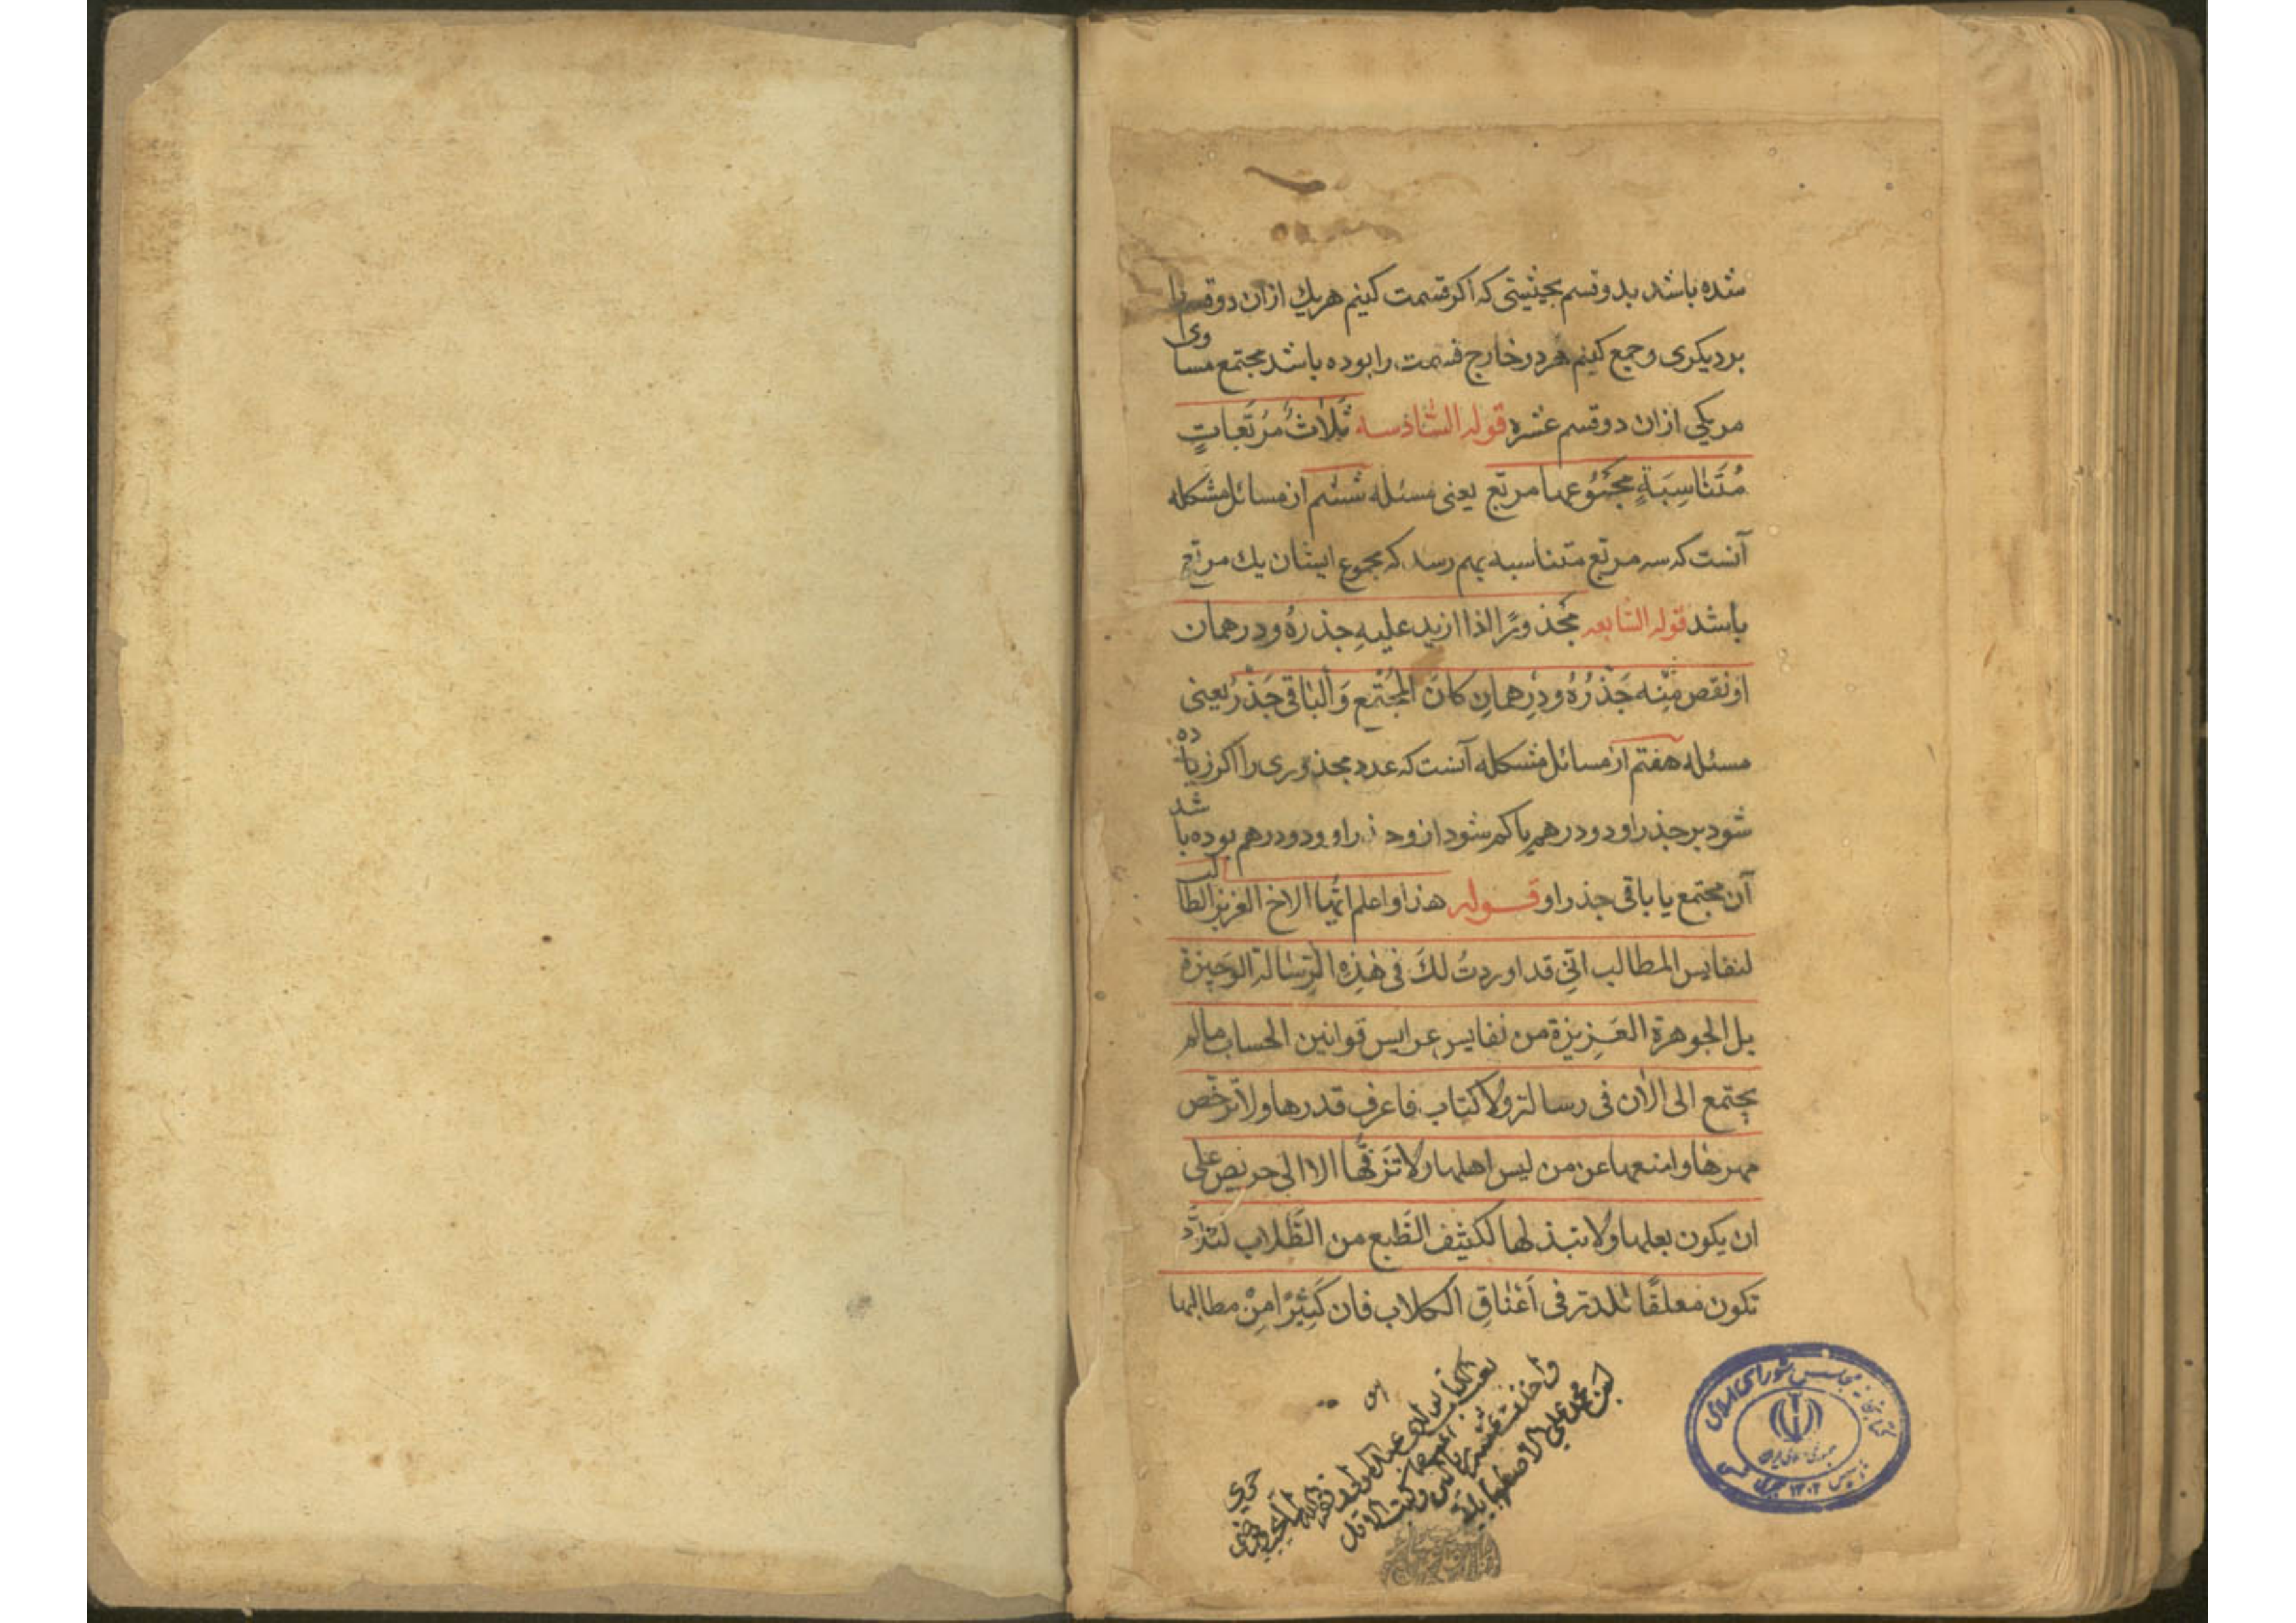 شده باشد بدو قسم بحیثیتی که اکر قسمت کنیم هریك ازان دو قسم را
بردیکری و جمع کنیم هردو خارج قسمت را بوده باشد مجتمع مساوی
مریکی ازان دو قسم عشره قوله السّادسه ثَلاثُ مُرَبَّعاتٍ
مُتَنٰاسِبَةٍ مجَمُوُعها مربّع یعنی مسئله ششم از مسائل مشکله
آنست که سه مربّع متناسبه بهم رسد که مجموع ایشان یك مربّع
باشد قوله السّابعه مَجْذورًا اذا ازید علیهِ جذرهُ ودرهمان
اونقص مِنْه جَذْرُهُ ودِرْهمانِ کانَ المجُتْمِع وَالبٰاقی جَذْرٌ یعنی
مسئله هفتم از مسائل مشکله آنست که عدد مجذوری را اکر زیاده
شود بر جذر او دو درهم یا کم شود ازو جذر او ودو درهم بوده باشد
آن مجتمع یا باقی جذر او قوله هذا واعلم ایّها الاخ العزیز الطالب
لنفایس المطالب انّی قد اوردتُ لكَ فی هٰذِهِ الرِّسٰالة الوَجیزة
بل الجوهرة العَزِیزة من نفایس عرایس قوانین الحساب مالم
یجتمع الی الاٰن فی رسالة ولاٰ کتاب فاعرف قدرها ولا ترخّص
مهرهٰا وامنعها عن من لیس اهلها ولا تَزفّها الا الی حریص علی
ان یکون بعلها ولا تبذلها لکثیف الطَبع من الطّلاب لئلّا
تکون معلقًا للدرّ فی اَعْنٰاقِ الکلاب فان کَثِیْرًا مِنْ مطالبها
کتابخانه مجلس شورای اسلامی
جمهوری اسلامی ایران
تاسیس ۱۳۰۲ هجری شمسی